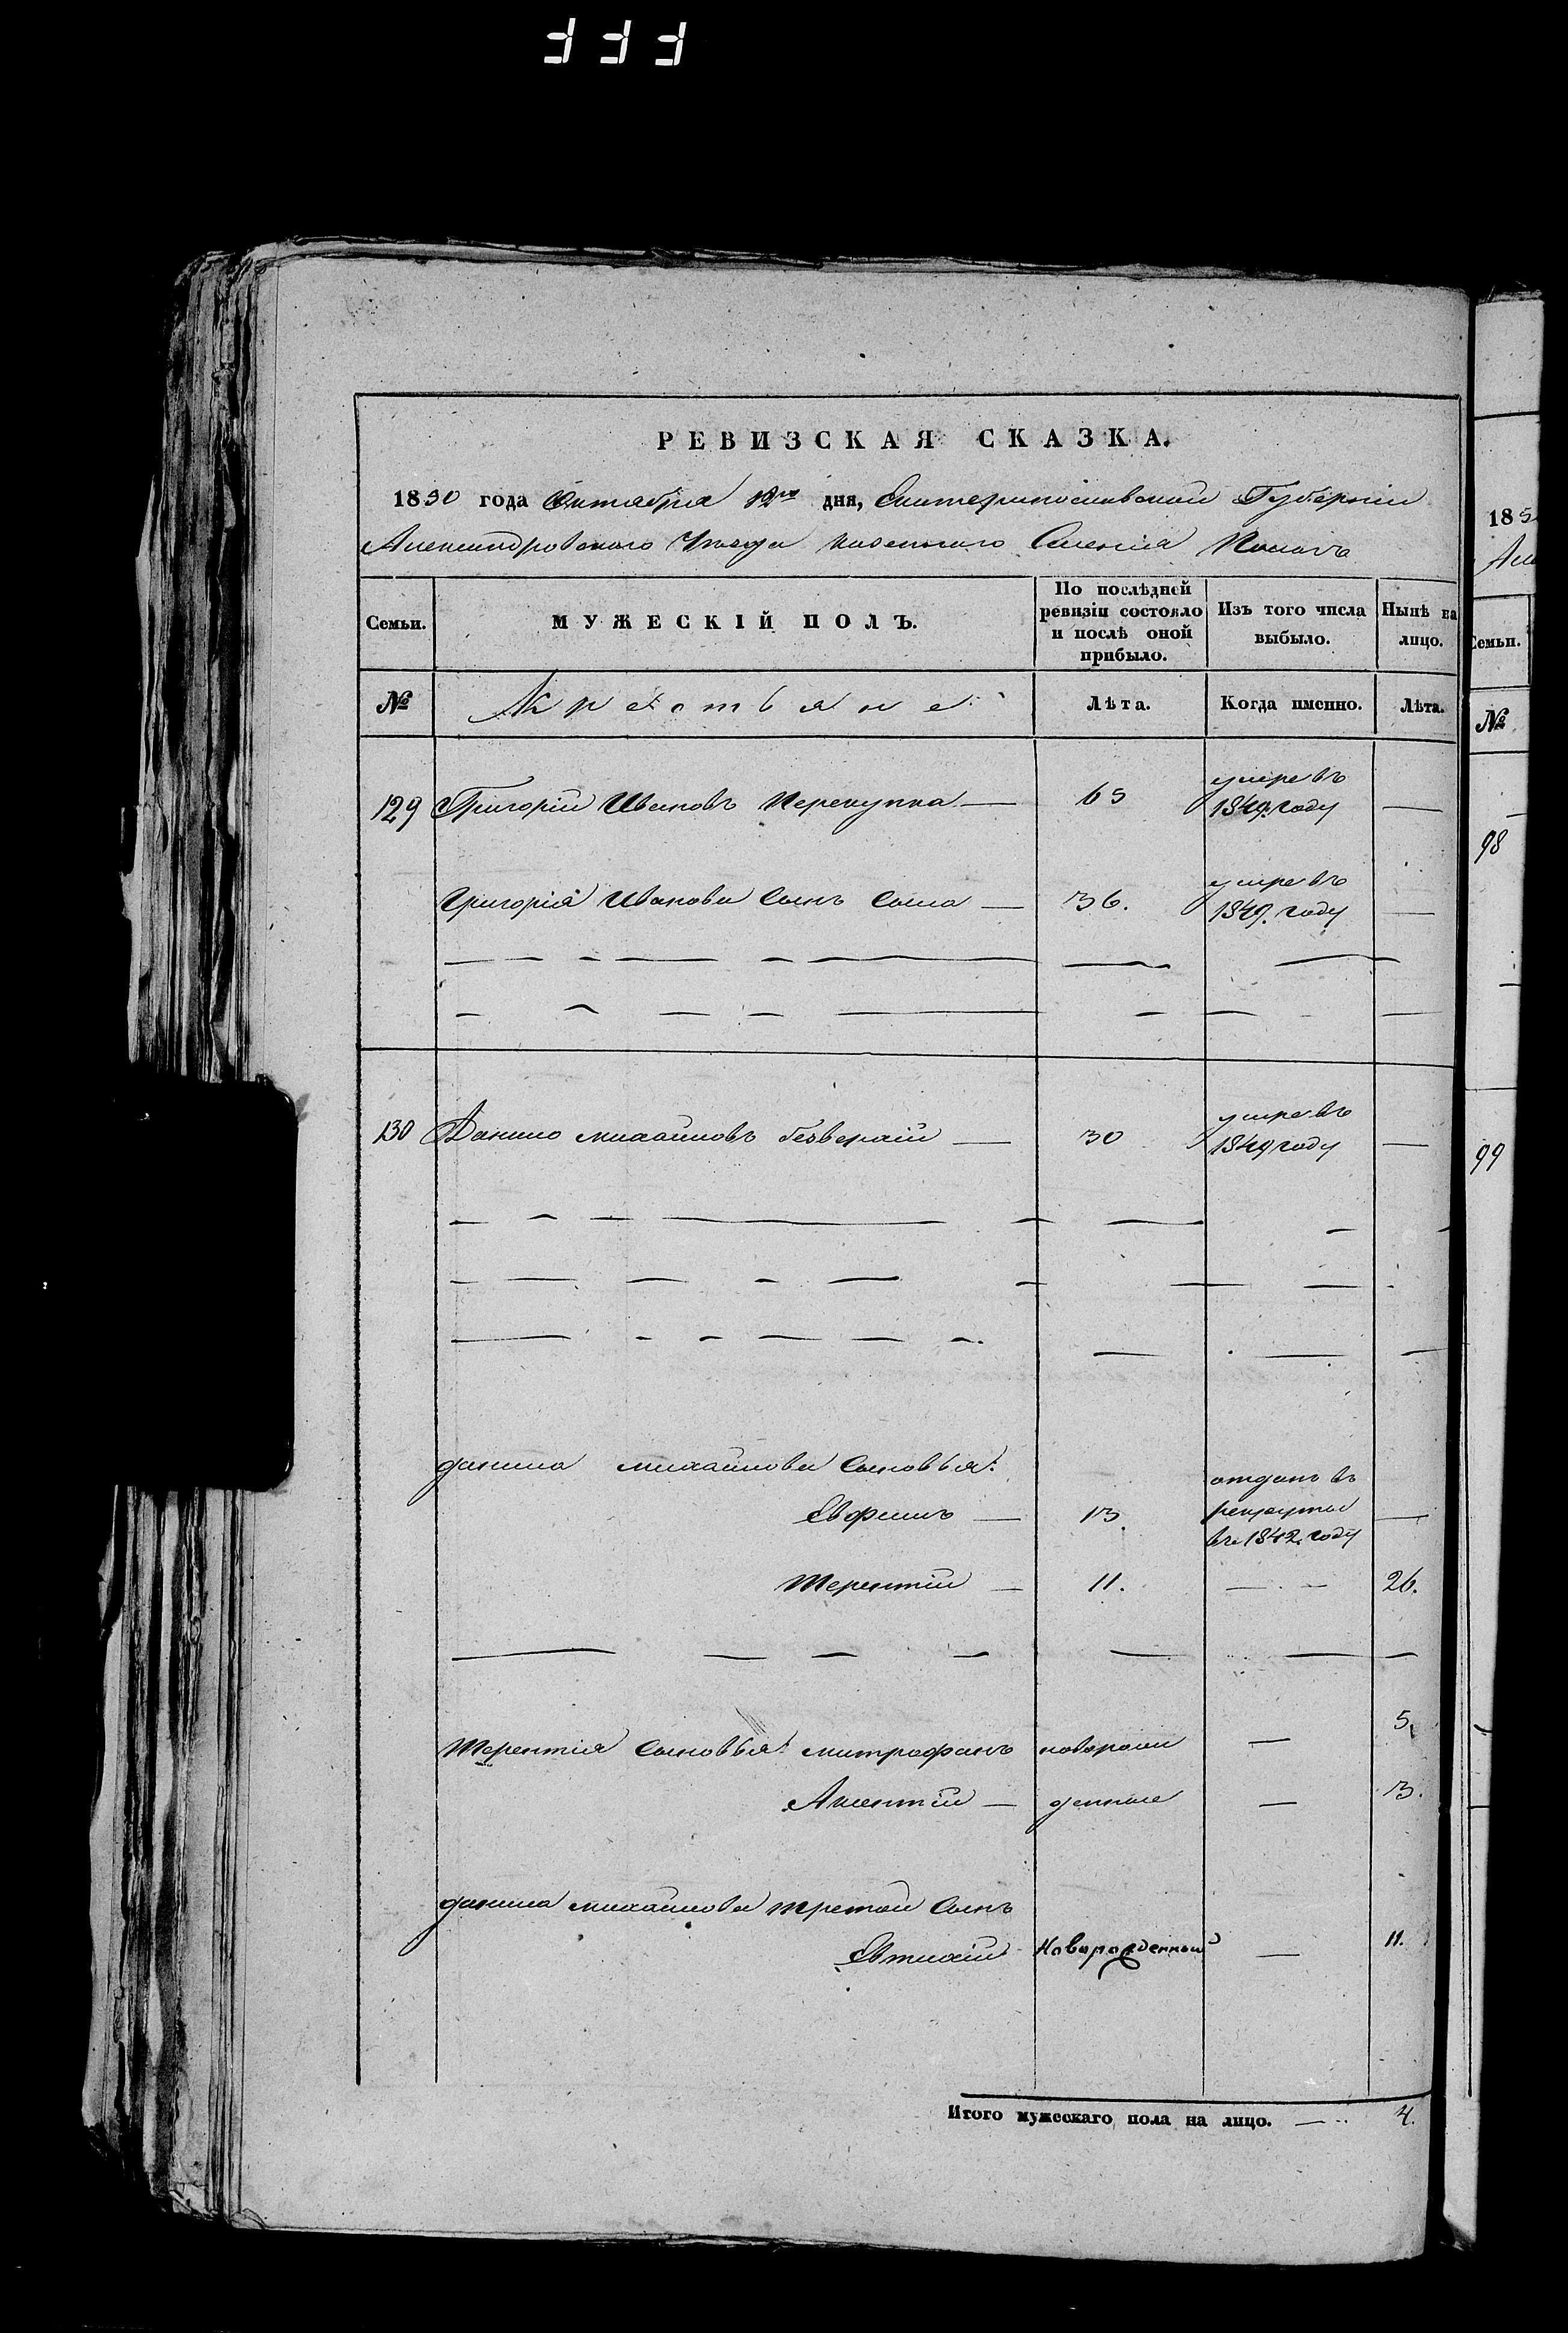 РЕВИЗСКАЯ СКАЗКА.
1850 года Октября 12го дня, Екатеринославской Губернии
Александровского Уѣзда казенного Селения
Семьи. МУЖЕСКІЙ ПОЛЪ. По послѣдней ревизіи состояло и послѣ оной прибыло. Изъ того числа выбыло. Нынѣ на лицо.
№ Крестьяне Лѣта. Когда именно. Лѣта.
129 Григорій Ивановъ Перекупка — 65 умре въ 1849. году —
Григорія Иванова Сынъ Сыла — 36. умре въ 1849. году —
130 Данило михайловъ безверхій — 30 умре въ 1849 году —
данила михайлова Сыновья:
Евфимъ — 13. отданъ въ рекруты въ 1842. году —
Терентій — 11. — 26.
Терентія Сыновья: митрофанъ новорож — 5.
Аксентій — денные — 3.
данила михайлова третой Сынъ
Евтихій Новорожденный — 11.
Итого мужескаго пола на лицо. — 4.
185
Семьи.
№
98
99